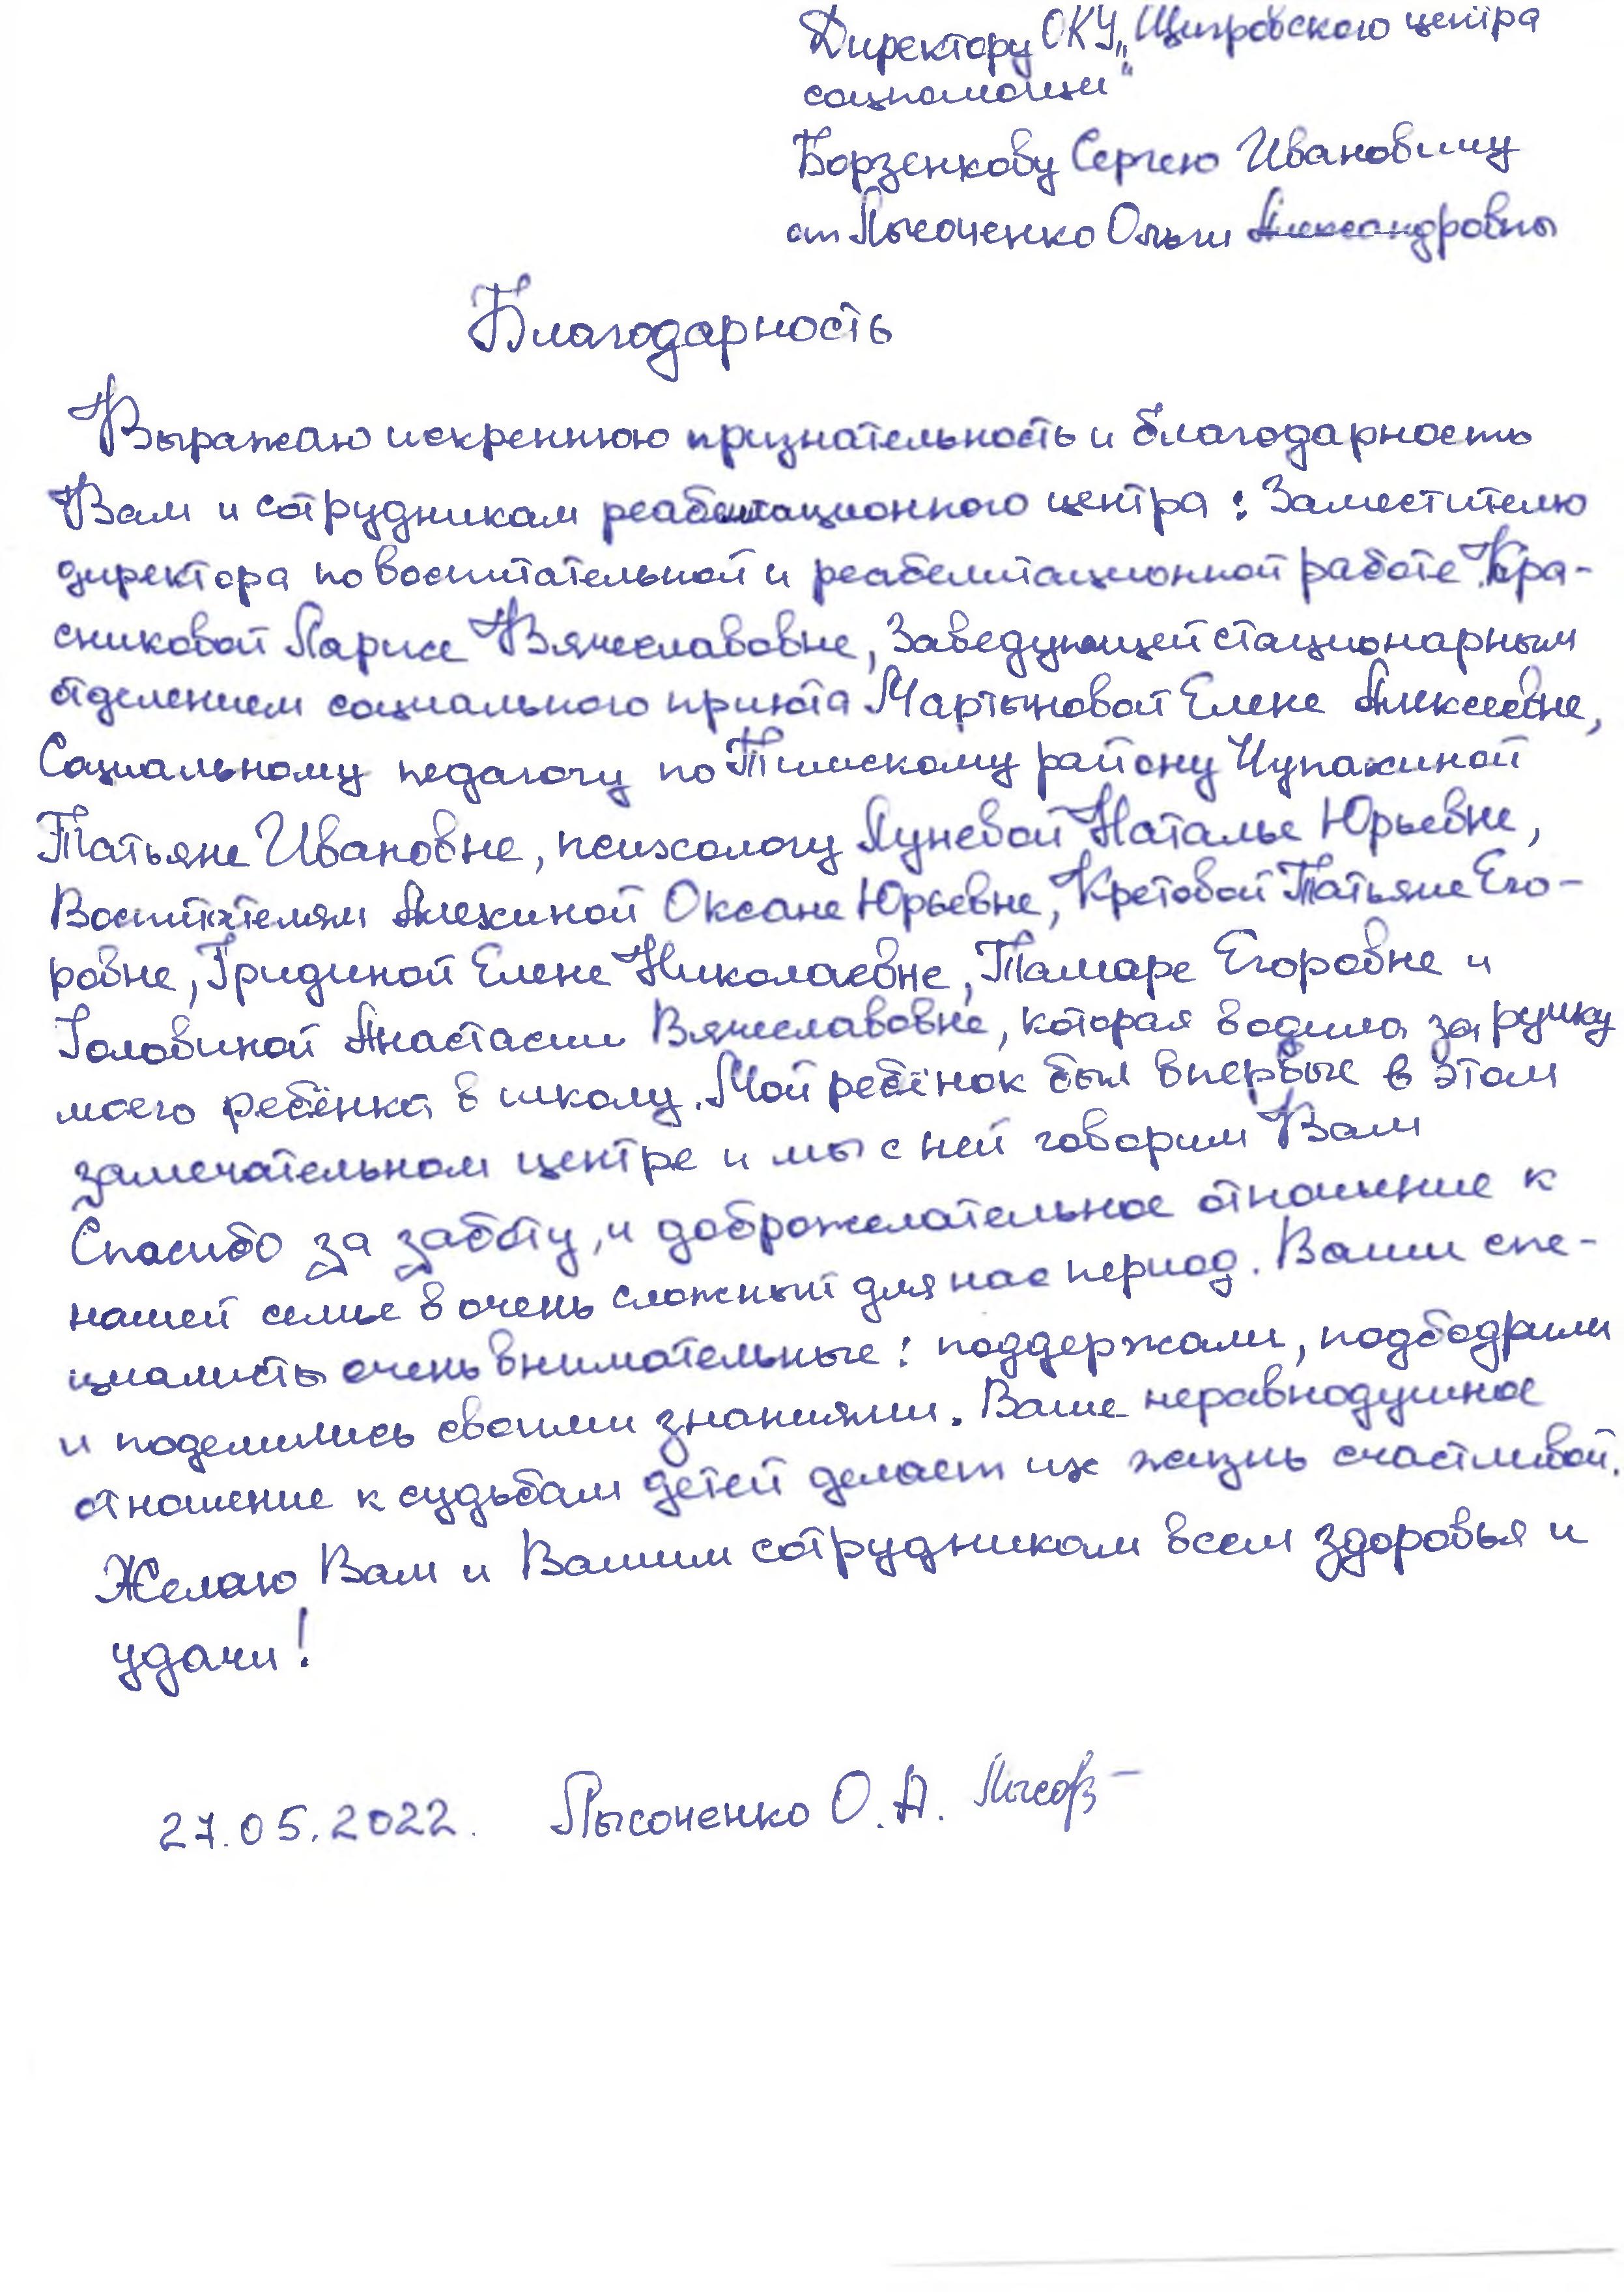 Директору ОКУ „Щигровского центра
соцпомощи"
Борзенкову Сергею Ивановичу
от Лысоченко Ольги Александровны
Благодарность
Выражаю искреннюю признательность и благодарность
Вам и сотрудникам реабилитационного центра: Заместителю
директора по воспитательной и реабелитационной работе Кра-
сниковой Ларисе Вячеславовне, Заведующей стационарным
отделением социального приюта Мартыновой Елене Алексеевне,
Социальному педагогу по Тимскому району Чупахиной
Татьяне Ивановне, психологу Луневой Наталье Юрьевне,
Воспитателям Алехиной Оксане Юрьевне, Кретовой Татьяне Его-
ровне, Гридиной Елене Николаевне, Тамаре Егоровне и
Головиной Анастасии Вячеславовне, которая водила за ручку
моего ребёнка в школу. Мой ребёнок был впервые в этом
замечательном центре и мы с ней говорим Вам
Спасибо за заботу, и доброжелательное отношение к
нашей семье в очень сложный для нас период. Ваши спе-
циалисты очень внимательные: поддержали, подбодрили
и поделились своими знаниями. Ваше неравнодушное
отношение к судьбам детей делает их жизнь счастливой.
Желаю Вам и Вашим сотрудникам всем здоровья и
удачи!
27.05.2022. Лысоченко О.А.